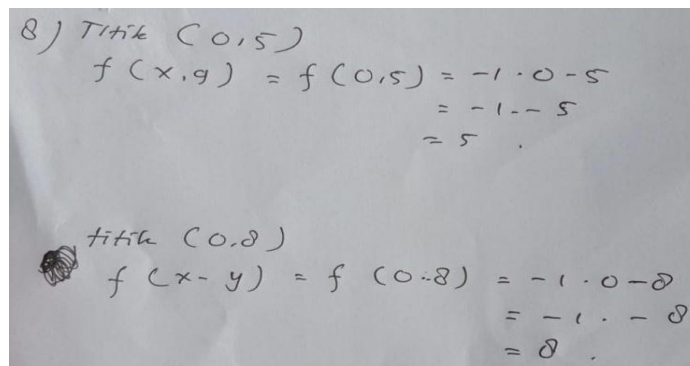 8) Titik (0,5)
f (x,y) = f (0,5) = -1 . 0 - 5
= -1 . - 5
= 5 .
titik (0.8)
f (x-y) = f (0-8) = -1 . 0 - 8
= -1 . - 8
= 8 .